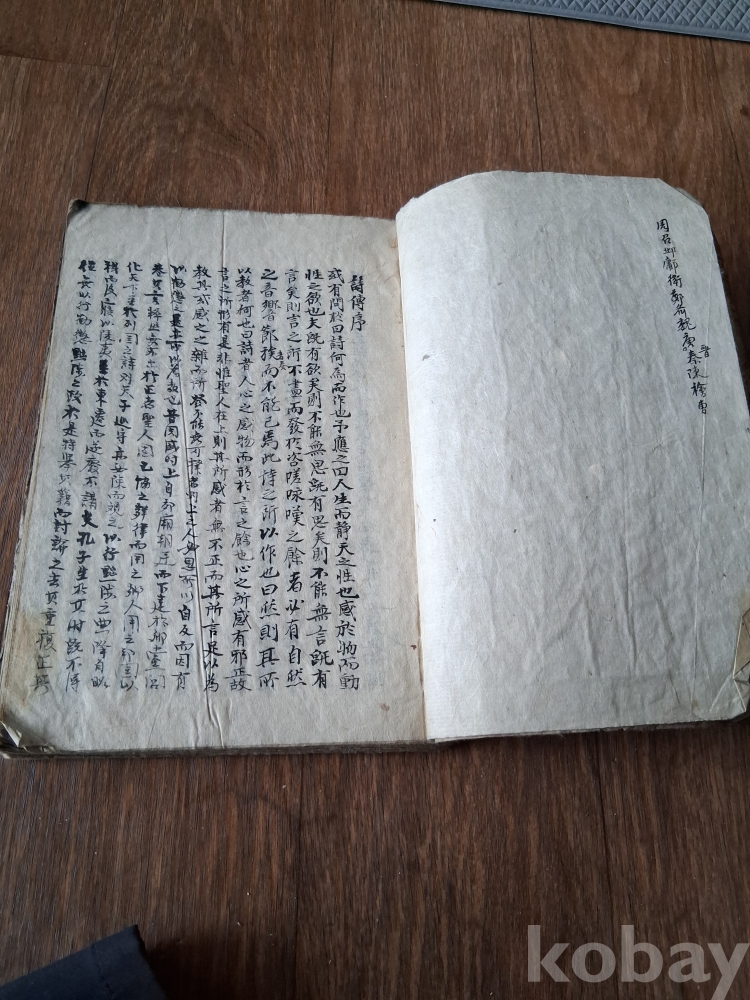 周召邶鄘衛鄭齊魏唐秦陳檜曹
晋
詩傳序
或有問於曰詩何爲而作也予應之曰人生而静天之性也感於物而動
性之欲也夫旣有欲矣則不能無思旣有思矣則不能無言旣有
言矣則言之所不盡而發於咨嗟咏嘆之餘者必有自然
之音響節族而不能已焉此詩之所以作也曰然則其所
以敎者何也曰詩者人心之感物而形於言之餘也心之所感有邪正故
言之所形有是非惟聖人在上則其所感者無不正而其所言足以爲
敎其或感之之雜而所發不能無可擇者則上之人必思所以自反而因有
以勸懲之是亦所以爲敎也昔周盛時上自郊廟朝廷而下達於鄕黨閭
巷其言粹然無不出於正者聖人固已協之聲律而用之鄕人用之邦國以
化天下至於列國之詩則天子巡守亦必陳而觀之以行黜陟之典降自昭
穆而後寖以陵夷至於東遷而遂廢不講矣孔子生於其時旣不得
位無以行勸懲黜陟之政於是特擧其籍而討論之去其重複正
kobay